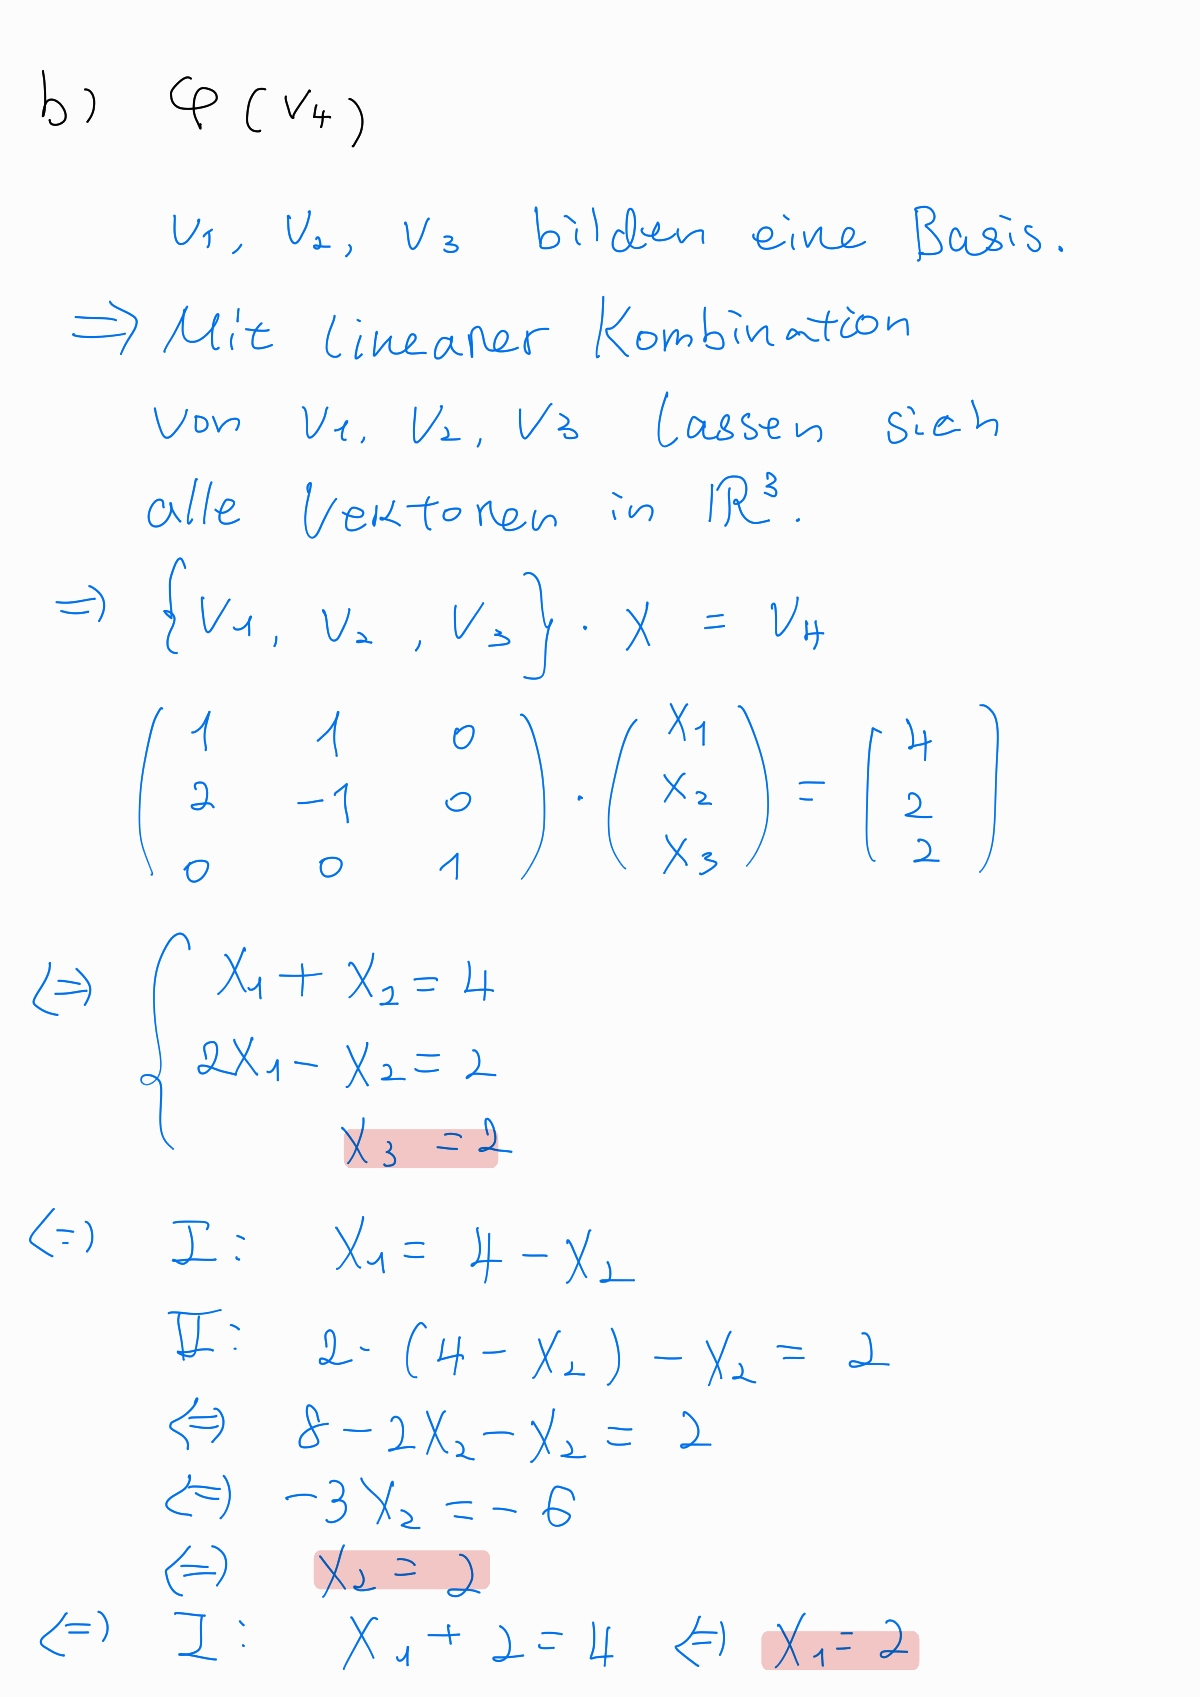 b) φ(v₄)
v₁, v₂, v₃ bilden eine Basis.
⇒ Mit linearer Kombination
von v₁, v₂, v₃ lassen sich
alle Vektoren in ℝ³.
⇒ {v₁, v₂, v₃} · x = v₄
( 1 1 0 ) ( x₁ ) ( 4 )
( 2 -1 0 ) · ( x₂ ) = ( 2 )
( 0 0 1 ) ( x₃ ) ( 2 )
⇔ { x₁ + x₂ = 4
2x₁ - x₂ = 2
x₃ = 2
⇔ I: x₁ = 4 - x₂
II: 2 · (4 - x₂) - x₂ = 2
⇔ 8 - 2x₂ - x₂ = 2
⇔ -3x₂ = -6
⇔ x₂ = 2
⇔ I: x₁ + 2 = 4 ⇔ x₁ = 2